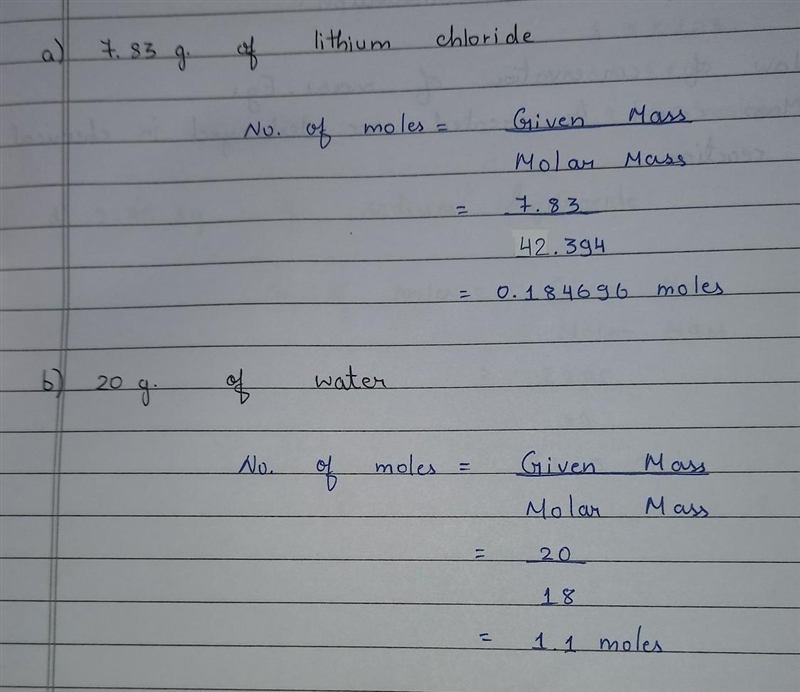 a) 7.83 g. of lithium chloride
No. of moles = Given Mass
Molar Mass
= 7.83
42.394
= 0.184696 moles
b) 20 g. of water
No. of moles = Given Mass
Molar Mass
= 20
18
= 1.1 moles